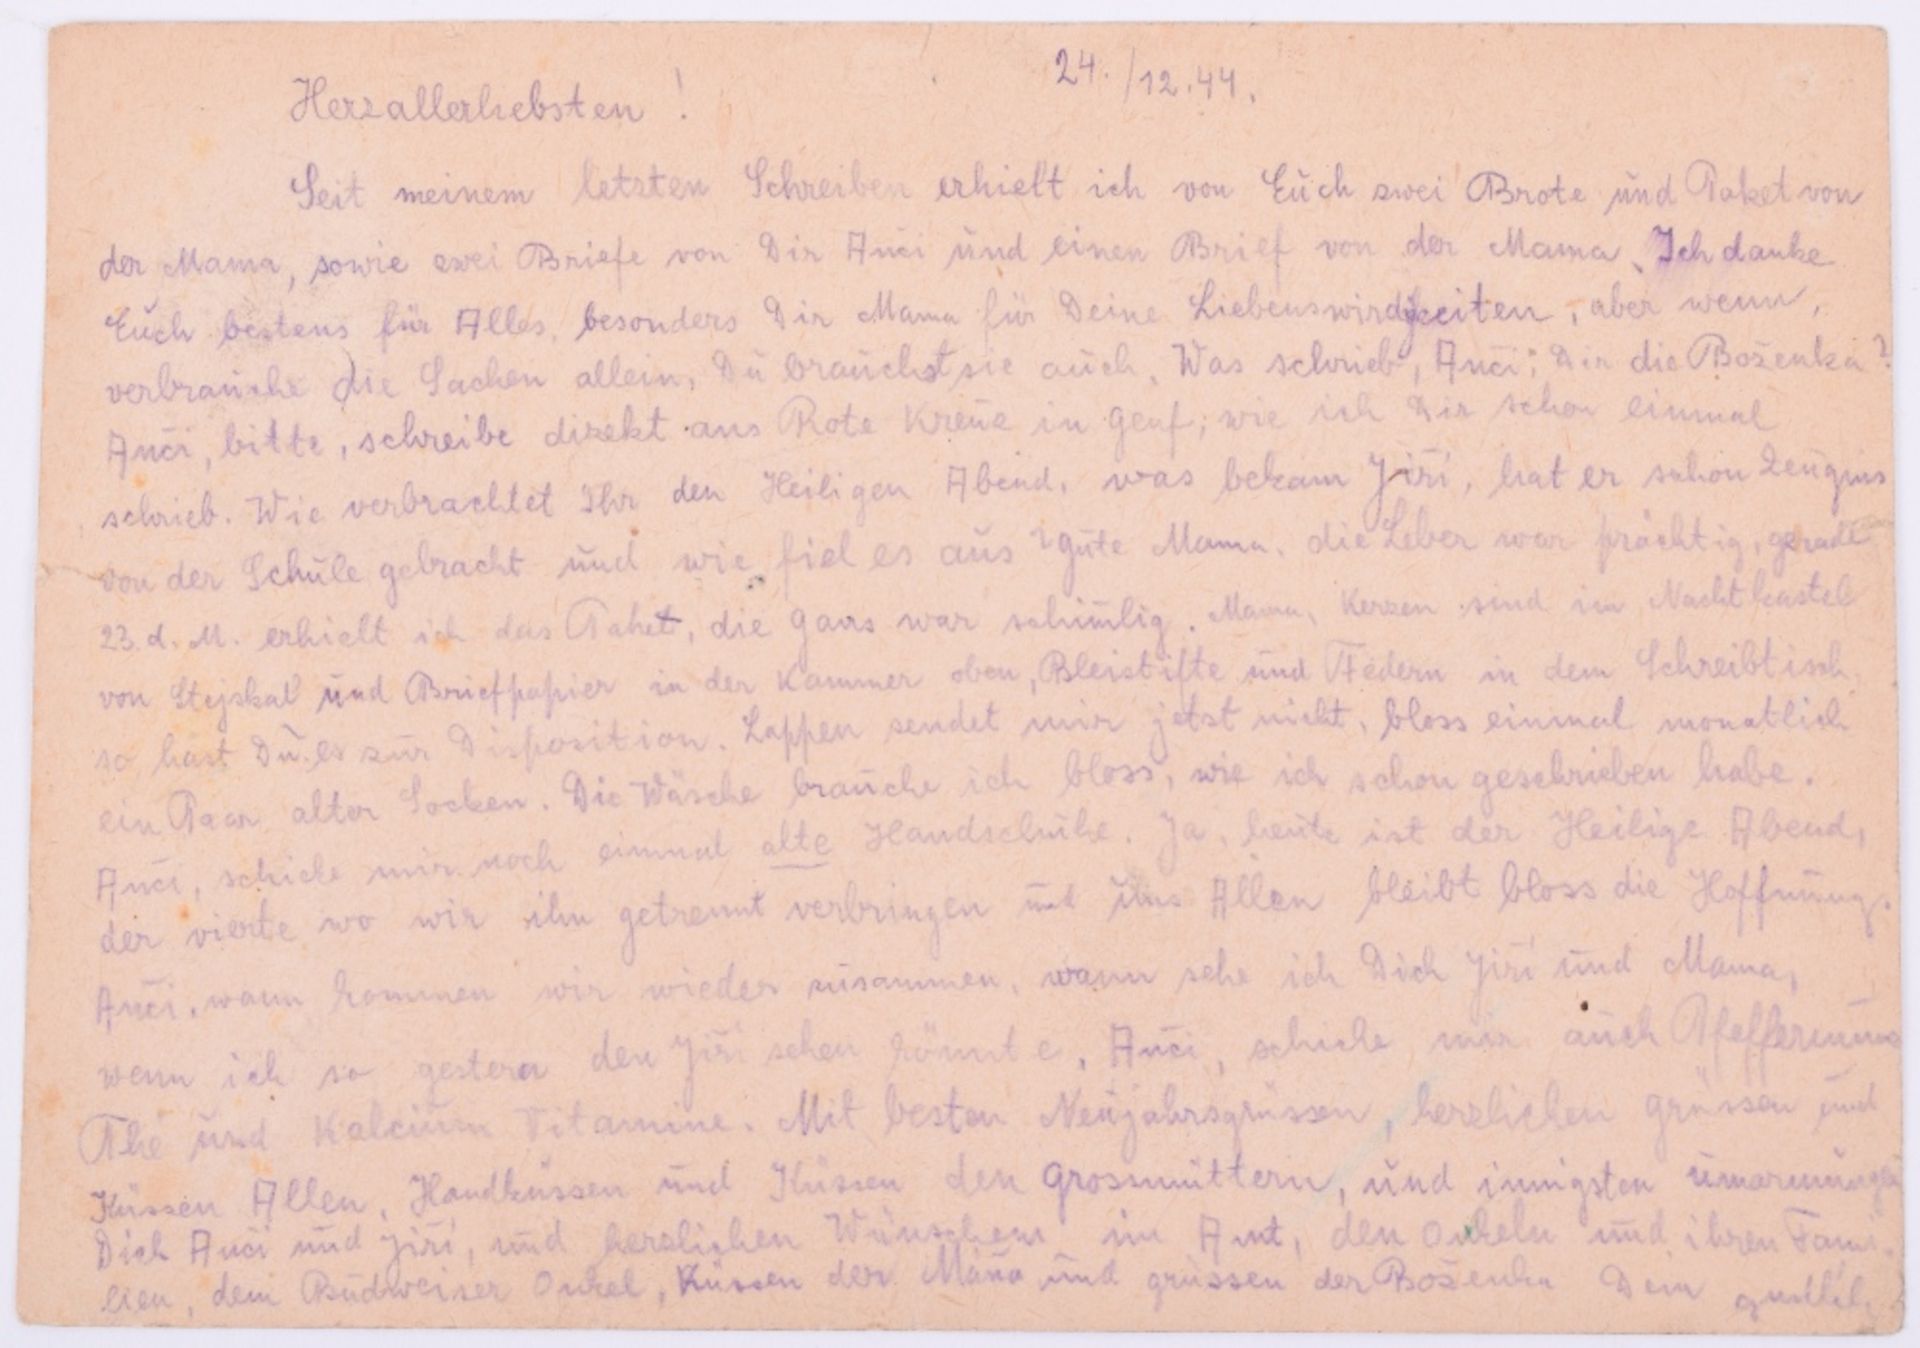 24./12.44.
Herzallerliebsten!
Seit meinem letzten Schreiben erhielt ich von Euch zwei Brote und Paket von
der Mama, sowie zwei Briefe von Dir Anči und einen Brief von der Mama. Ich danke
Euch bestens für Alles, besonders Dir Mama für Deine Liebenswirdigkeiten, aber wenn,
verbrauche die Sachen allein, Du brauchst sie auch. Was schrieb, Anči, Dir die Boženka?
Anči, bitte, schreibe direkt ans Rote Kreuz in Genf, wie ich Dir schon einmal
schrieb. Wie verbrachtet Ihr den Heiligen Abend, was bekam Jiří, hat er schon Zeugnis
von der Schule gebracht und wie fiel es aus? Gute Mama, die Leber war prächtig, gerade
23. d. M. erhielt ich das Paket, die Gans war schimlig. Mama, Kerzen sind im Nachtkastel
von Stejskal und Briefpapier in der Kammer oben, Bleistifte und Federn in dem Schreibtisch,
so hast Du es zur Disposition. Lappen sendet mir jetzt nicht, bloss einmal monatlich
ein Paar alter Socken. Die Wäsche brauche ich bloss, wie ich schon geschrieben habe.
Anči, schicke mir noch einmal alte Handschuhe. Ja, heute ist der Heilige Abend,
der vierte wo wir ihn getrennt verbringen und Uns Allen bleibt bloss die Hoffnung.
Anči, wann kommen wir wieder zusammen, wann sehe ich Dich Jiří und Mama,
wenn ich so gestern den Jiří sehen könnte, Anči, schicke mir auch
Thé und Kalcium Vitamine. Mit besten Neujahrsgrüssen, herzlichen Grüssen und
Küssen Allen, Handküssen und Küssen den Grossmüttern, und innigsten Umarmungen
Dich Anči und Jiří, und herzlichen Wünschen im Amt, den Onkeln und ihren Fami-
lien, dem Budweiser Onkel, Küssen der Máňa und Grüssen der Boženka Dein